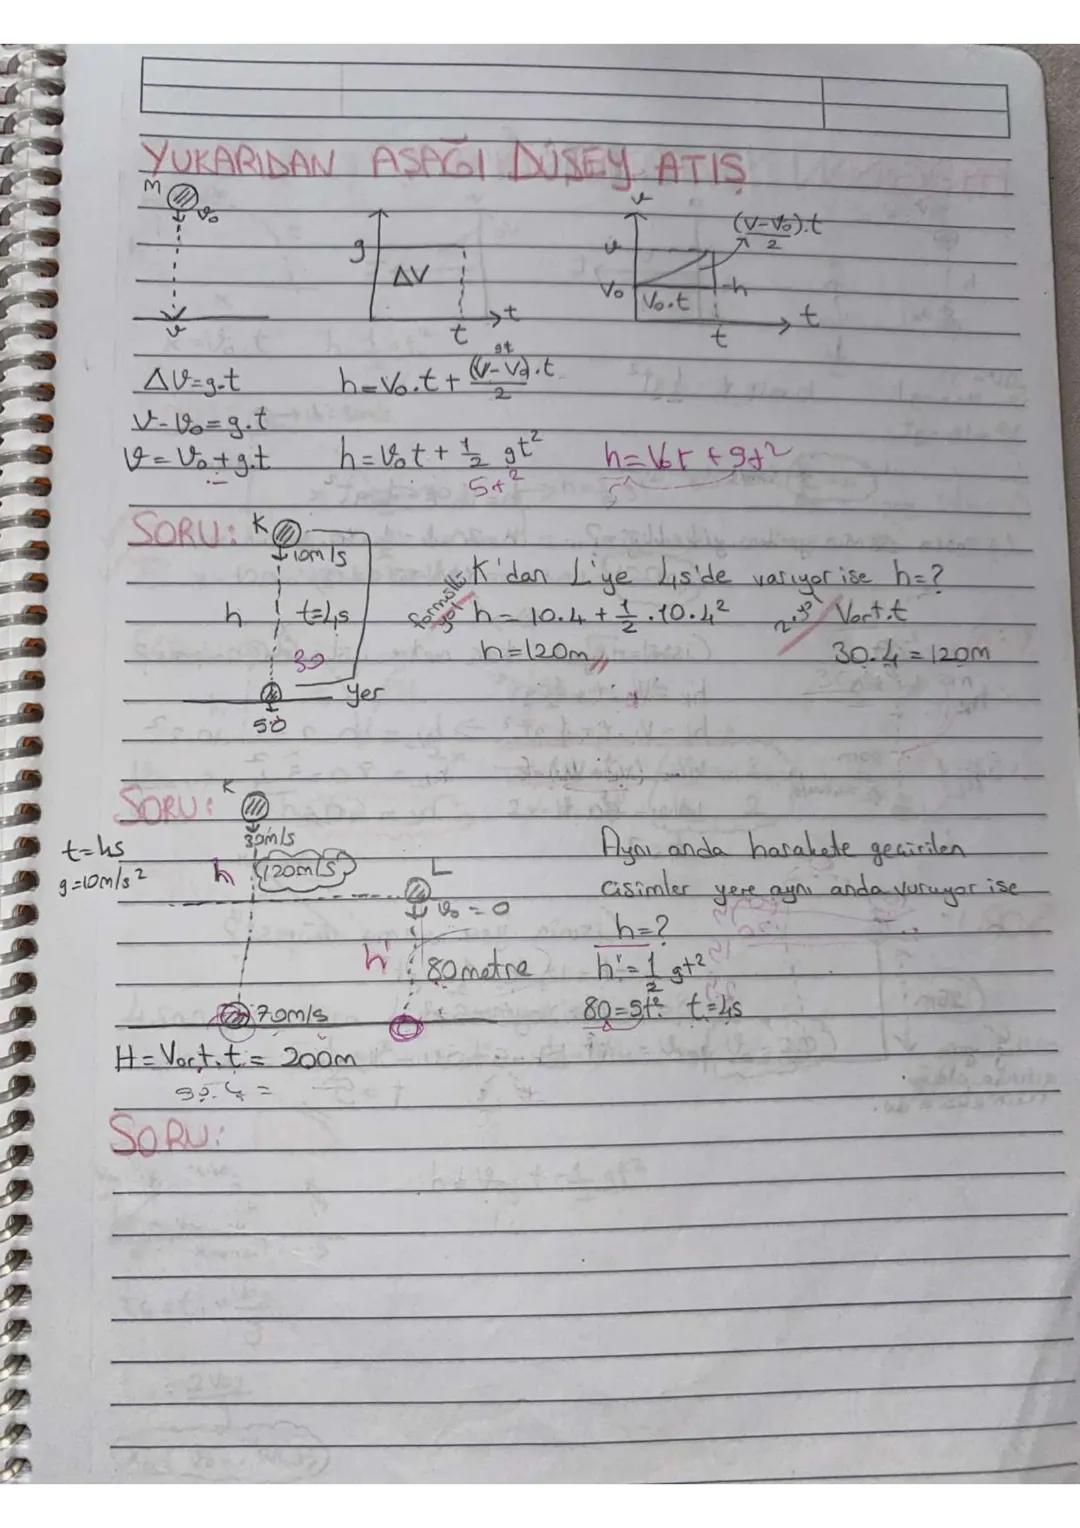 YUKARIDAN AŞAĞI DÜŞEY ATIŞ
M
V₀
v
g
ΔV
t
t
v
v
V₀
V₀.t
(V-V₀).t
2
h
t
t
ΔV=g.t
h=V₀.t+ (V-V₀).t
2
gt
V-V₀=g.t
V=V₀+g.t
h=V₀t+ 1/2 gt²
5t²
SORU:
K
10m/s
h
t=4s
30
Yer
50
K'dan L'ye 4s'de varıyor ise h=?
formüllü yol
h=10.4+1/2.10.4²
h=120m
2. yol
Vort.t
30.4=120m
SORU:
K
30m/s
t=4s
g=10m/s²
h
120m/s
L
V₀=0
h'
80metre
70m/s
Aynı anda harakete geçirilen
cisimler yere aynı anda vuruyor ise
h=?
h'=1/2 gt²
80=5t² t=4s
H=Vort.t=200m
SORU: